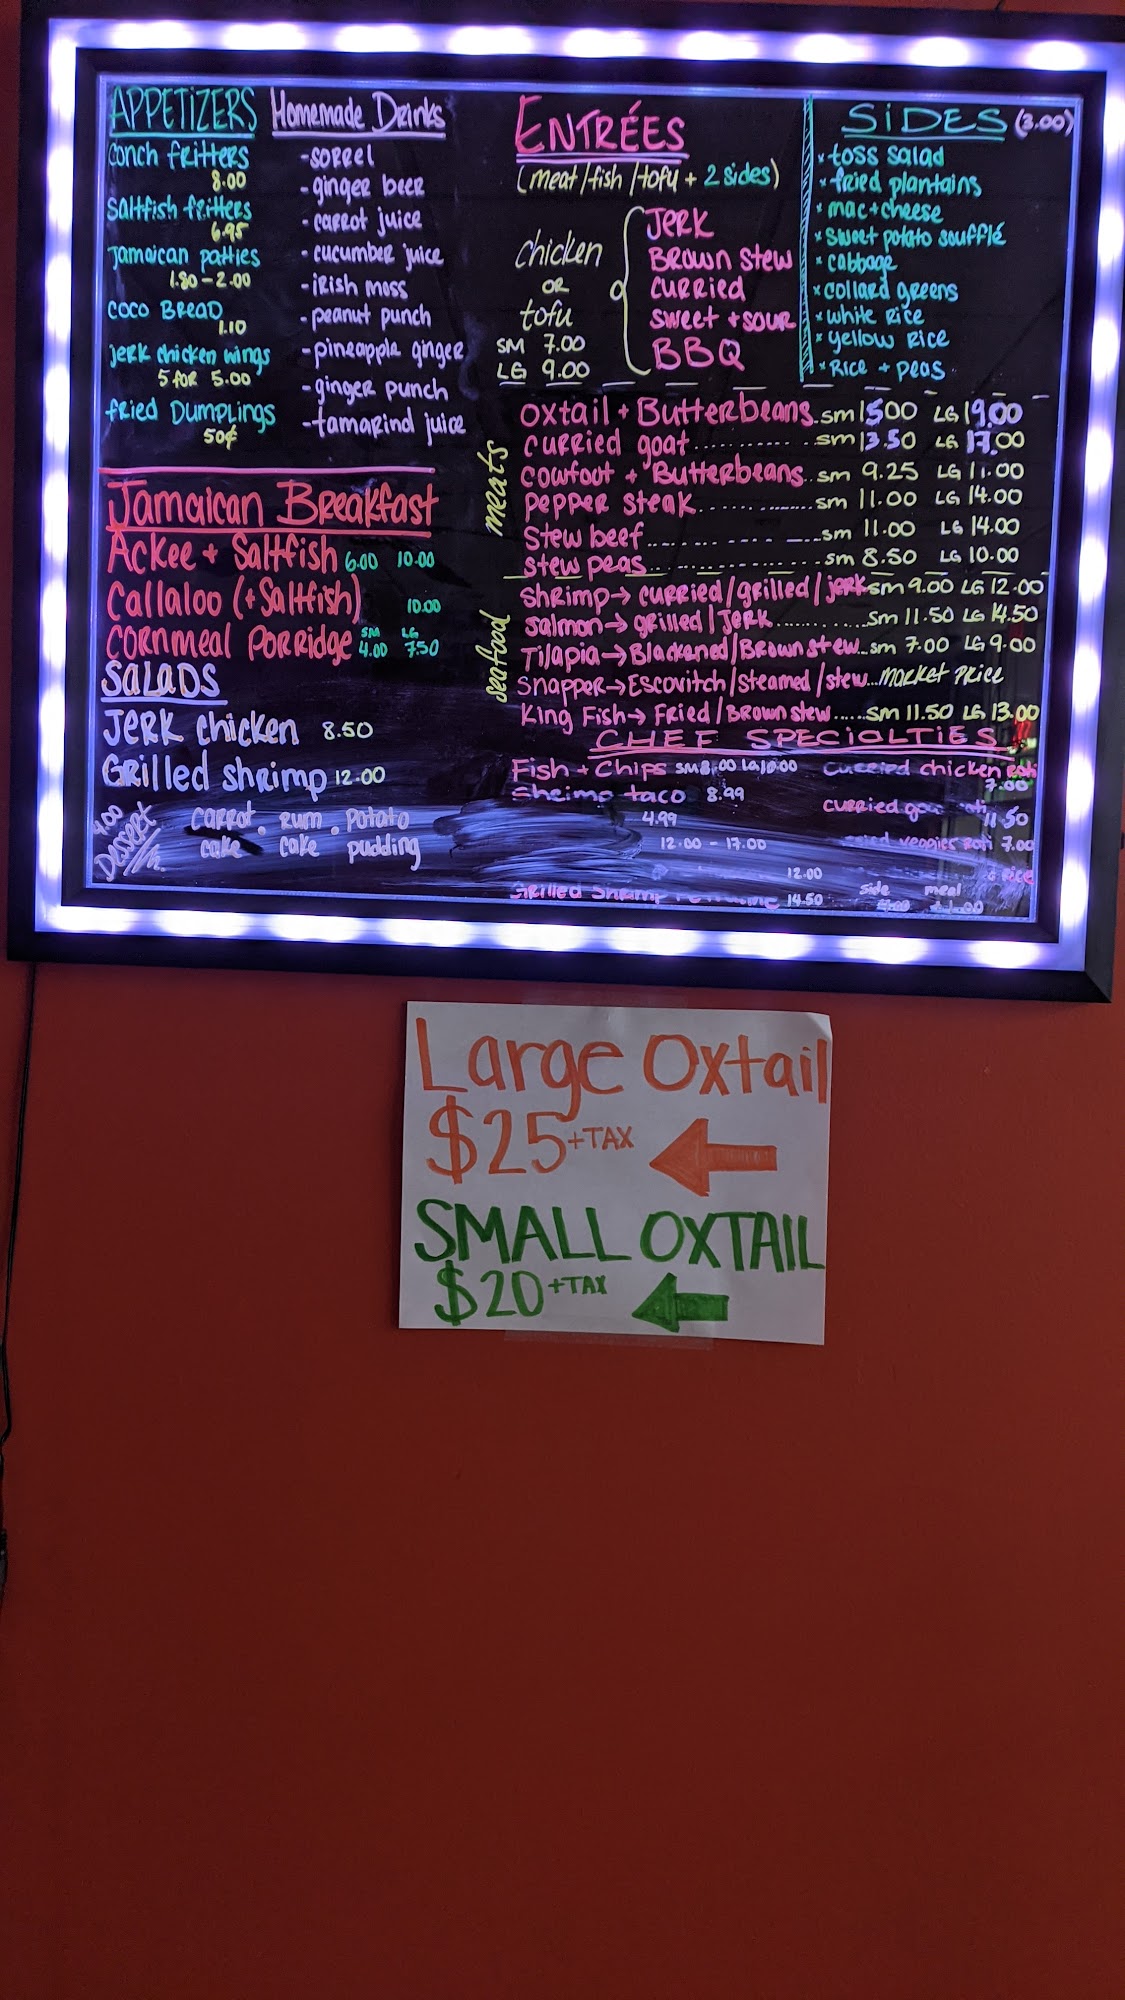 APPETIZERS
conch fritters
8.00
Saltfish fritters
6.95
Jamaican patties
1.80-2.00
COCO BREAD
1.10
Jerk chicken wings
5 for 5.00
fried Dumplings
50¢
Homemade Drinks
-sorrel
-ginger beer
-carrot juice
-cucumber juice
-irish moss
-peanut punch
-pineapple ginger
-ginger punch
-tamarind juice
Jamaican Breakfast
Ackee + Saltfish 6.00 10.00
Callaloo (+Saltfish) 10.00
SM LG
Cornmeal Porridge 4.00 7.50
SALADS
Jerk chicken 8.50
Grilled shrimp 12.00
Dessert
carrot . rum . potato
cake cake pudding
ENTRÉES
(meat/fish/tofu + 2 sides)
chicken
OR
tofu
SM 7.00
LG 9.00
JERK
BROWN STEW
CURRIED
SWEET + SOUR
BBQ
SIDES (3.00)
* toss salad
* fried plantains
* mac+cheese
* sweet potato soufflé
* cabbage
* collard greens
* white rice
* yellow rice
* Rice + peas
meats
oxtail + Butterbeans..sm 15.00 LG 19.00
curried goat..........sm 13.50 LG 17.00
cowfoot + Butterbeans..sm 9.25 LG 11.00
pepper steak..........sm 11.00 LG 14.00
stew beef..........sm 11.00 LG 14.00
stew peas..........sm 8.50 LG 10.00
seafood
shrimp→ curried/grilled/jerk sm 9.00 LG 12.00
salmon→ grilled/Jerk..........sm 11.50 LG 14.50
Tilapia→Blackened/Brown stew..sm 7.00 LG 9.00
snapper→Escovitch/steamed/stew...market price
King Fish→ Fried/Brown stew......sm 11.50 LG 13.00
CHEF SPECIALTIES
Fish + Chips SM 8.00 LG 10.00
Shrimp taco 8.99
4.99
12.00 - 17.00
12.00
Grilled Shrimp 14.50
curried chicken roti
7.00
curried
veggies roti 7.00
side meal
Large Oxtail
$25 +TAX
SMALL OXTAIL
$20 +TAX